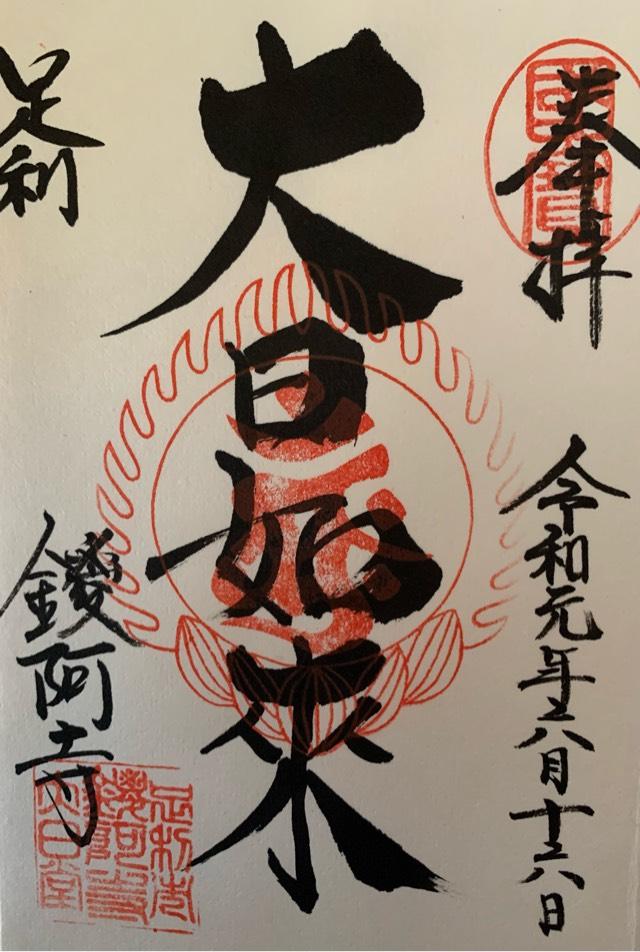 奉拝
國寶
令和元年六月十六日
大日如来
足利
鑁阿寺
足利荘
鑁阿寺
大日堂